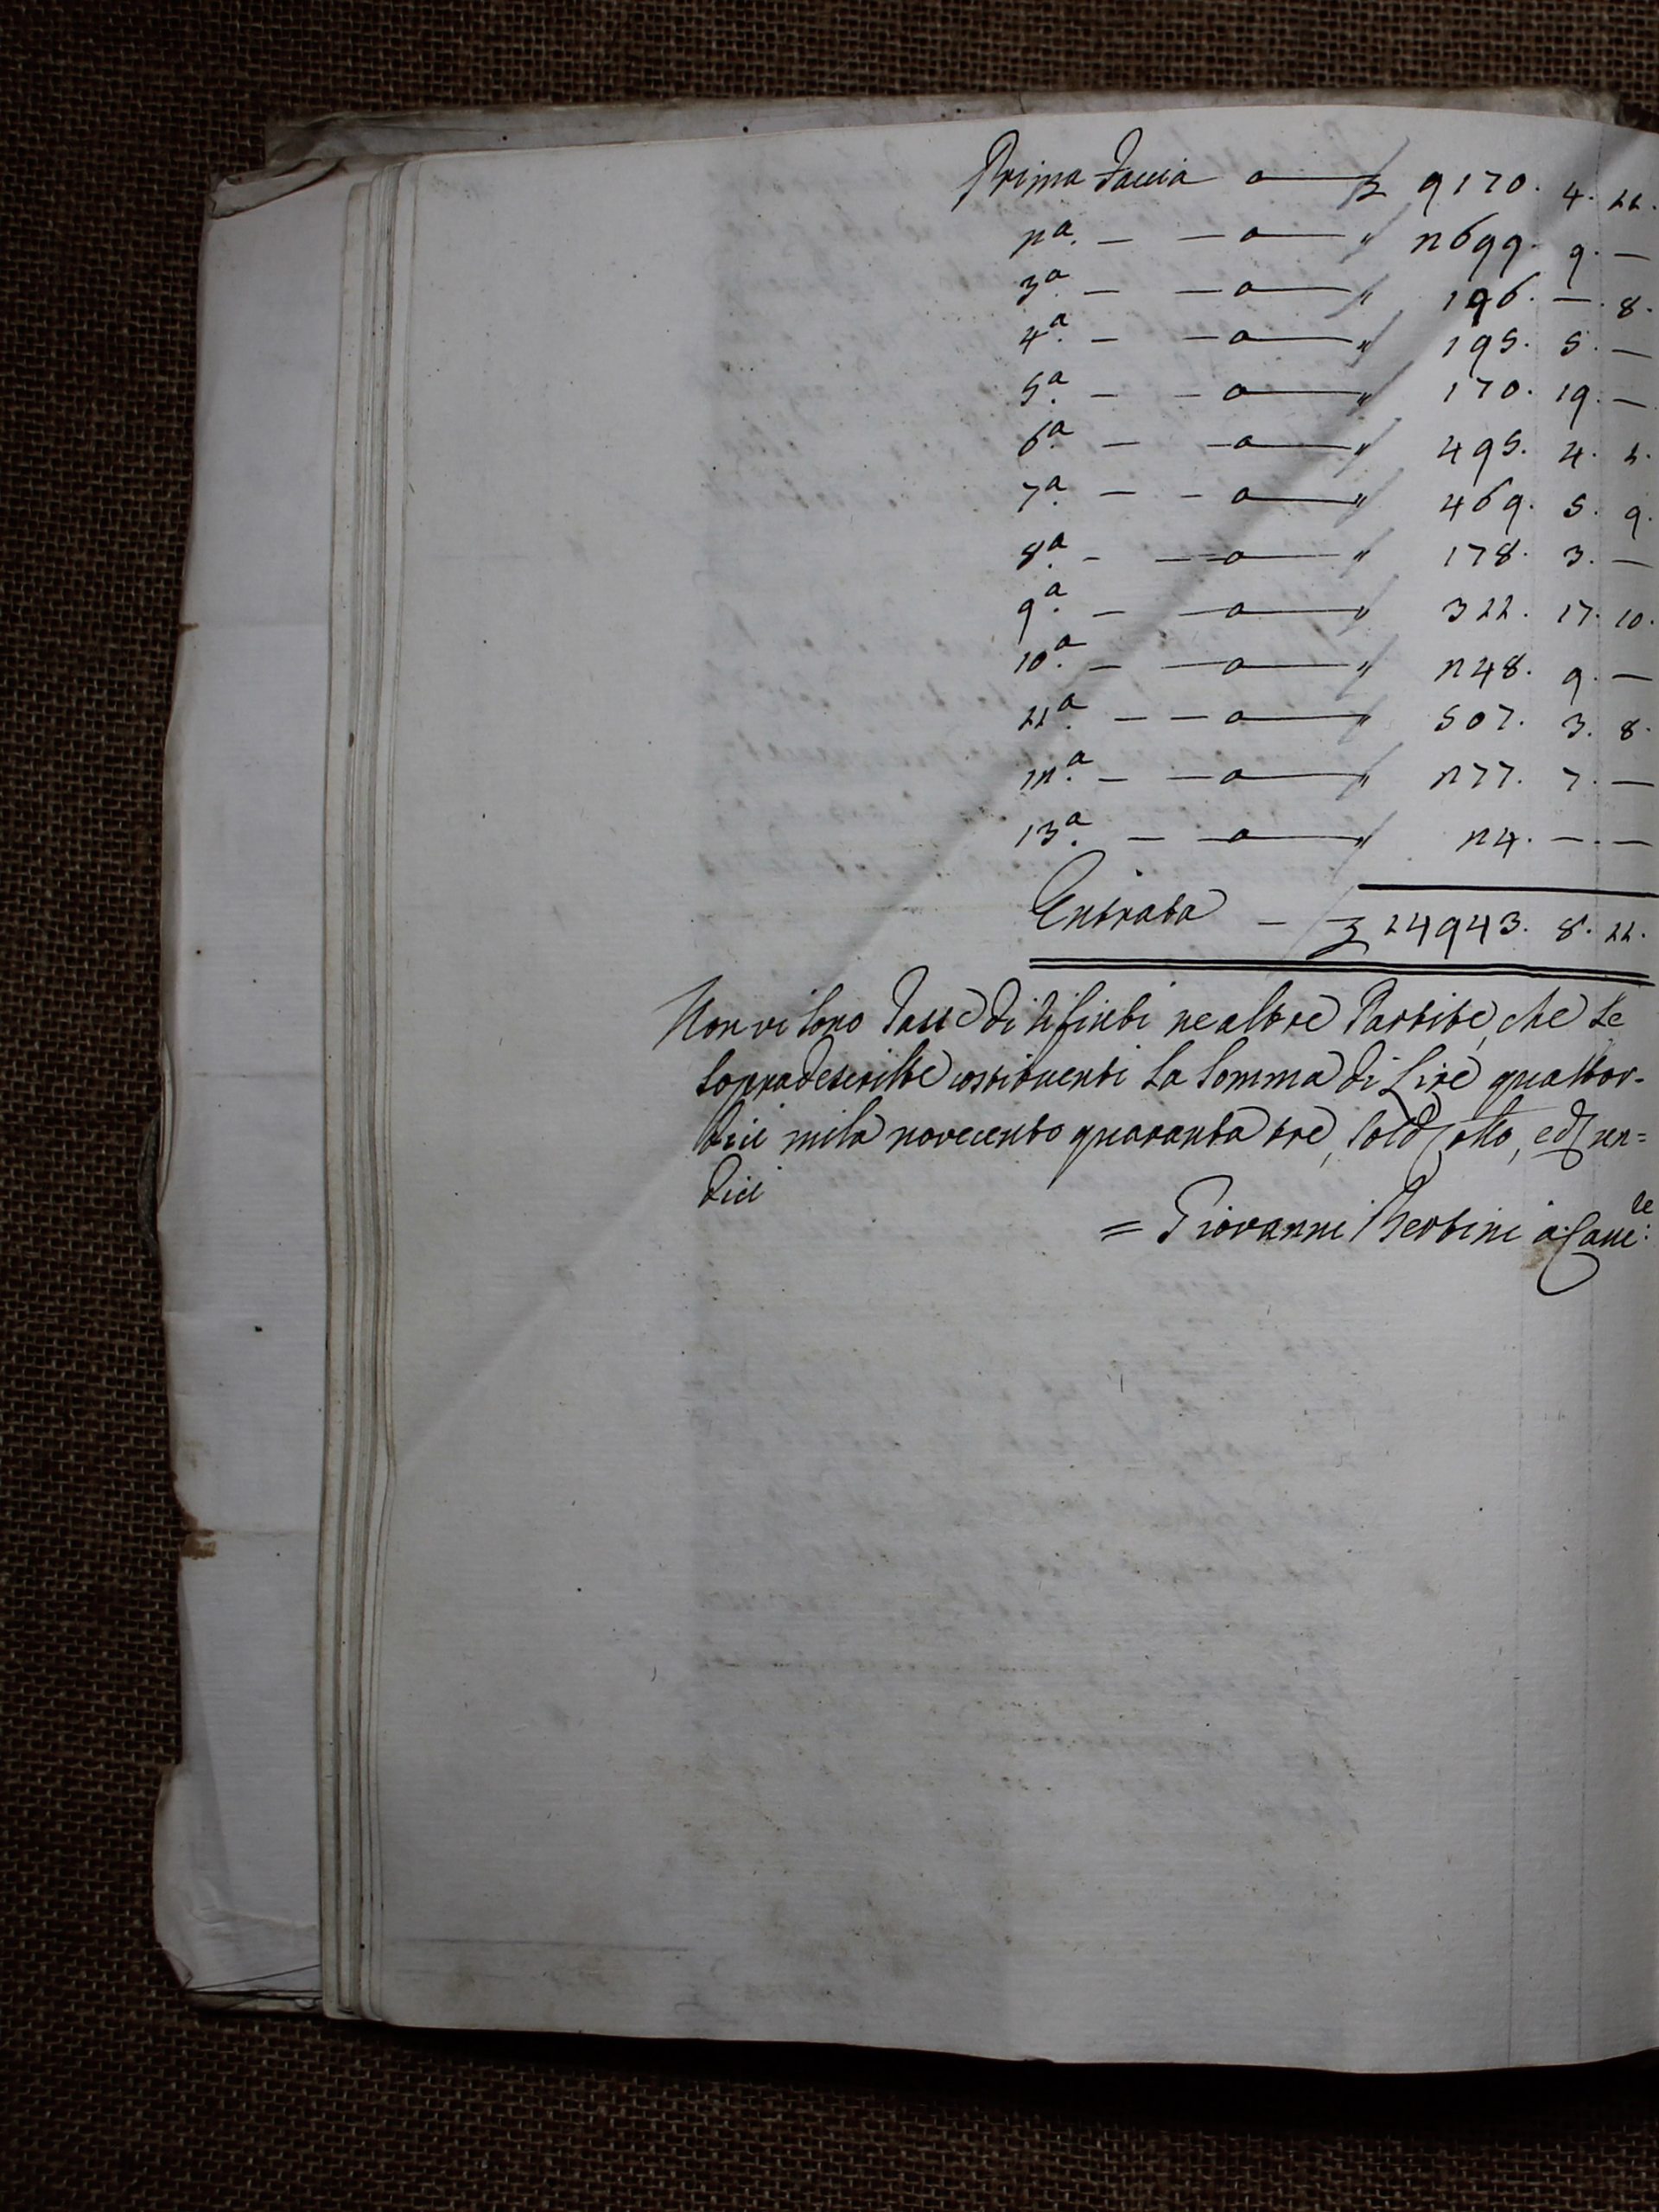 Prima Faccia — £ 9170. 4. 11.
2ª. — — " 2699. 9. —
3ª. — — " 196. —. 8.
4ª. — — " 195. 5. —
5ª. — — " 170. 19. —
6ª. — — " 495. 4. 1.
7ª. — — " 469. 5. 9.
8ª. — — " 178. 3. —
9ª. — — " 311. 17. 10.
10ª. — — " 248. 9. —
11ª. — — " 507. 3. 8.
12ª. — — " 277. 7. —
13ª. — — " 24. — . —
Entrata — £ 14943. 8. 11.
Non vi sono Tasse di Rifiuti ne altre Partite, che le
sopradescritte costituenti La Somma di Lire quattor-
dici mila novecento quaranta tre, sold otto, e d un=
dici
= Giovanni Bertini a: Canc:le